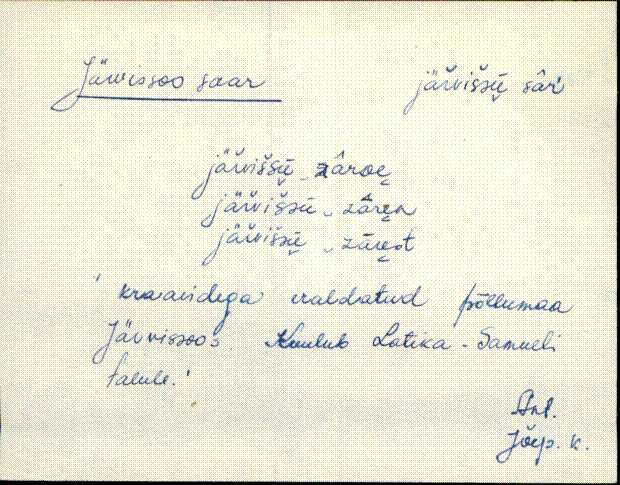 Järvissoo saar
jär̆višsū̬ sâr
jär̆višsū̬ _ zâroe̬
jär̆višsū̬ _ zâre̬n
jär̆višsū̬ _ zâre̬t
' kraavidega eraldatud põllumaa
Järvissoos. Kuulub Latika-Samueli
talule.'
Anl.
Jõep. k.